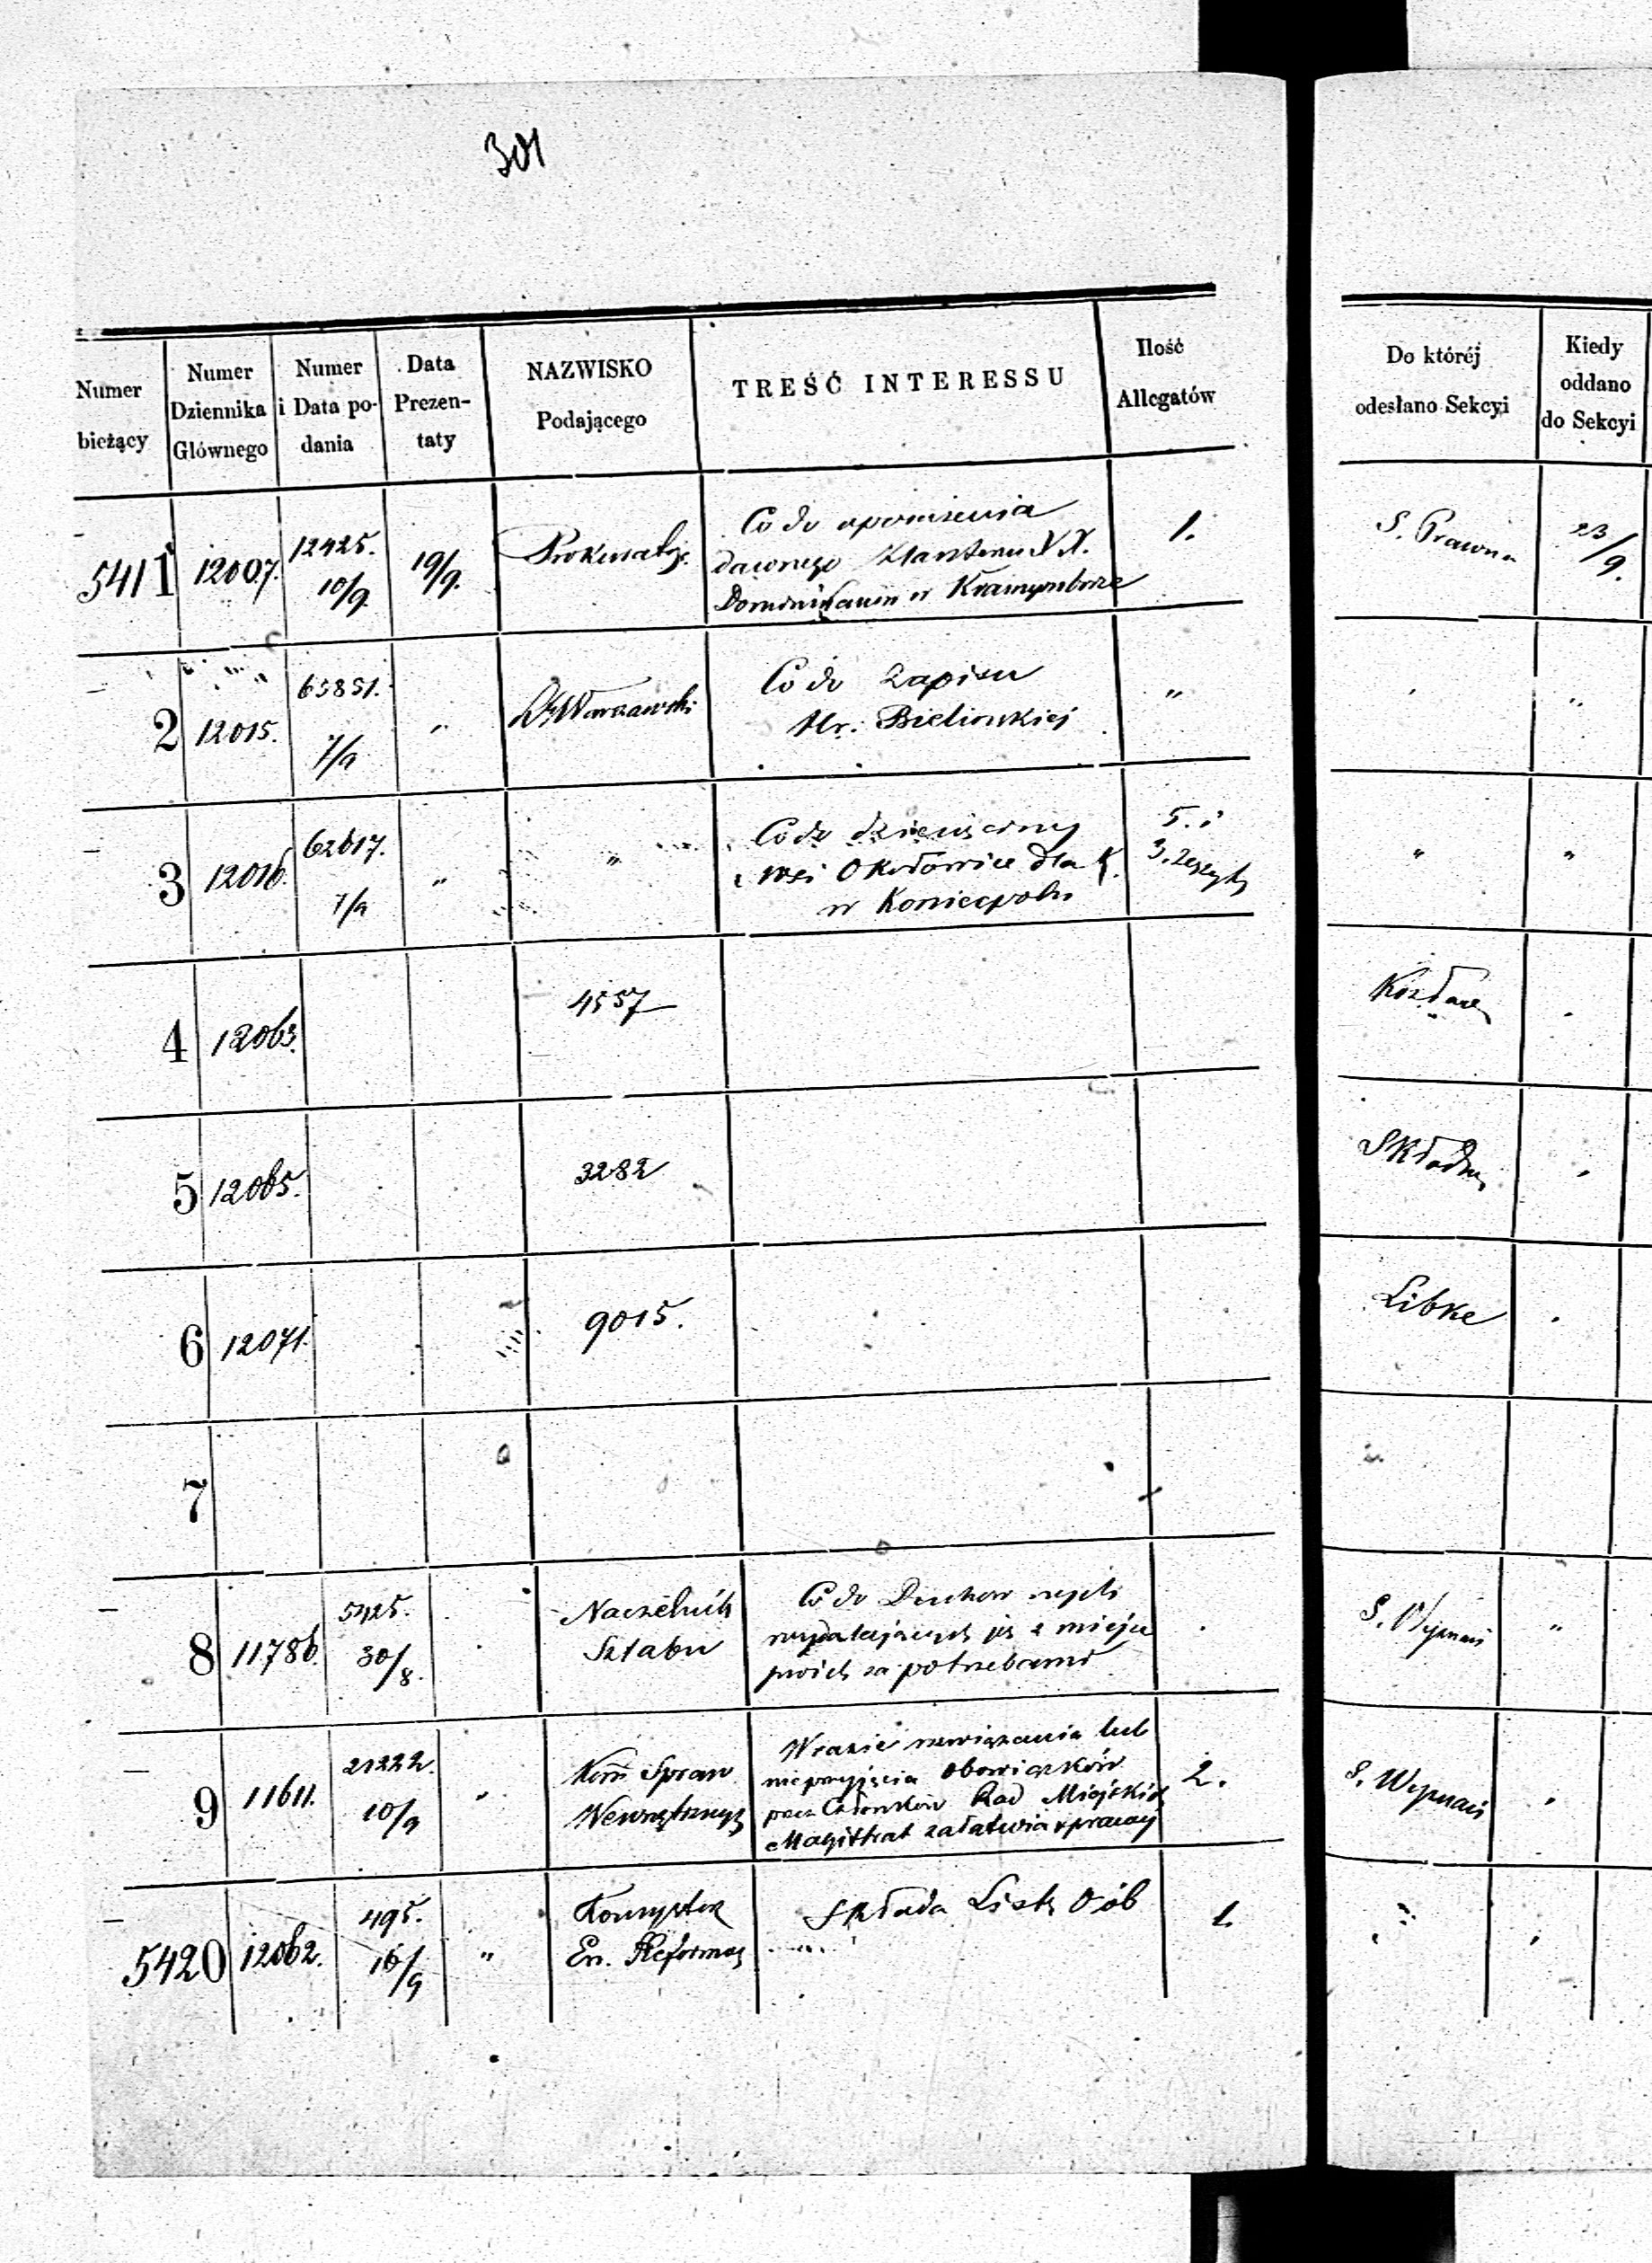 301
Numer bieżący | Numer Dziennika Głównego | Numer i Data podania | Data Prezentaty | NAZWISKO Podającego | TREŚĆ INTERESSU | Ilość Allegatów | Do któréj odesłano Sekcyi | Kiedy oddano do Sekcyi
5411 | 12007. | 12425. 10/9. | 19/9. | | Co do | 1. | S. Prawna | 23/9.
dawnego Klasztoru XX.
w
2 | 12015. | 7/9 | „ | Warszawski | Co do Zapisu | „
Hr: Bielinskiej
3 | 12016. | 62617. 7/9 | „ | „ | Co do dziesięciny | 5. i | „ | „
wsi Okołowice dla K. | 3. Zeszyty
w Koniecpolu
4 | 12063. | 4557
5 | 12065. | 3282
6 | 12071. | 9015. | Libke
7
8 | 11786. | 5425. 30/8. | Naczelnik | Co do | „
Sztabu | z miejsc
swoich za potrzebami
9 | 11611. | 21222. 10/9 | „ | Kom Spraw | W razie lub | 2. | S. Wyznań
Wewnętrznych | nieprzyjęcia Obowiązków
przez Członków Rad Miejskich
Magistrat załatwia
5420 | 12062. | 495. 16/9 | „ | Konsystorz | Składa Listę Osób | 1.
Ew. Reformo.